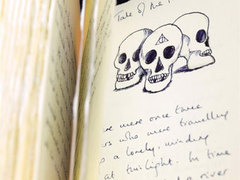 Tale of the
ere were once three
rs who were travelling
a lonely, winding
at twilight. In time
a river